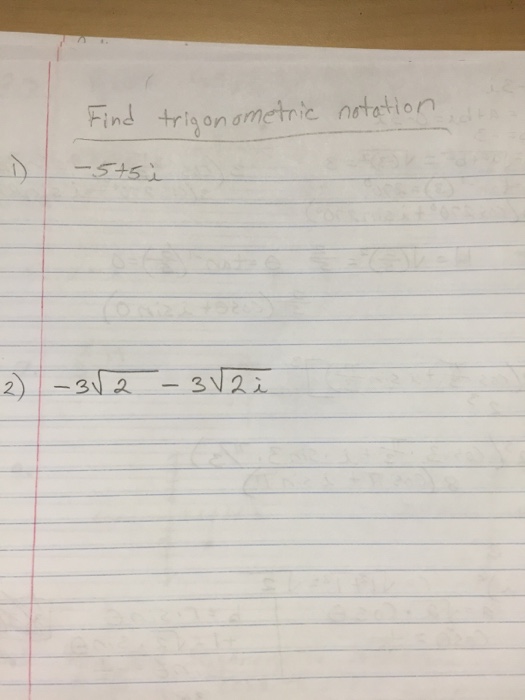 Find trigonometric notation
1) -5+5i
2) -3√2 - 3√2i